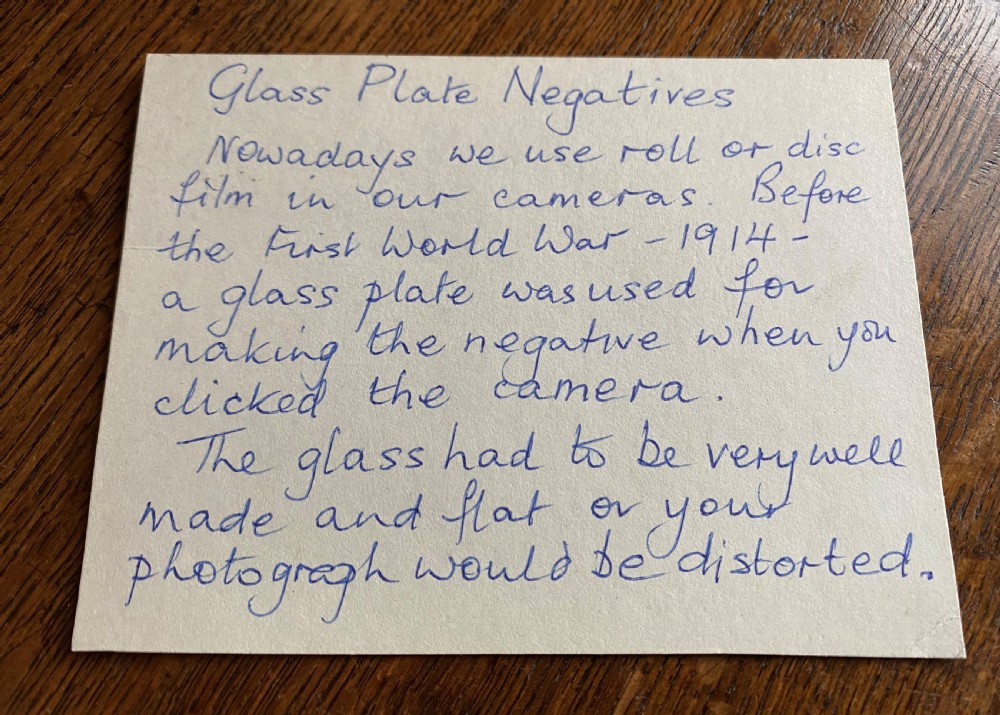 Glass Plate Negatives
Nowadays we use roll or disc
film in our cameras. Before
the First World War - 1914 -
a glass plate was used for
making the negative when you
clicked the camera.
The glass had to be very well
made and flat or your
photograph would be distorted.